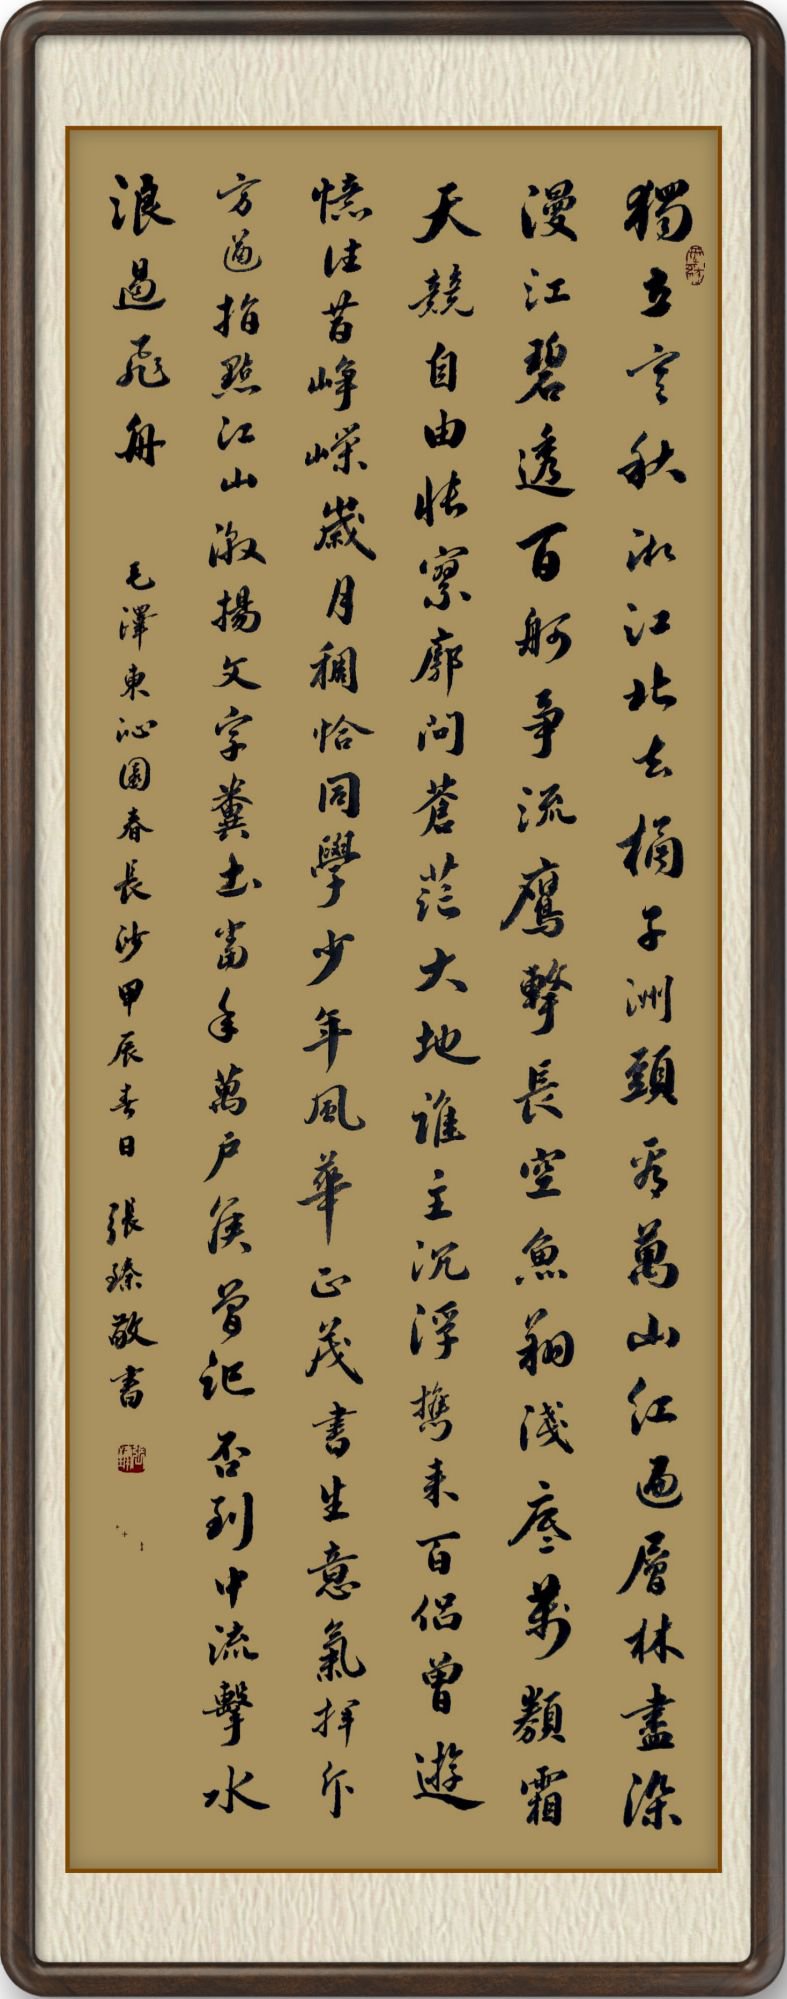 獨立寒秋湘江北去橘子洲頭看萬山紅遍層林盡染
漫江碧透百舸爭流鷹擊長空魚翔淺底萬類霜
天競自由悵寥廓問蒼茫大地誰主沉浮攜來百侣曾遊
憶往昔崢嶸歲月稠恰同學少年風華正茂書生意氣揮斥
方遒指點江山激揚文字糞土當年萬户侯曾記否到中流擊水
浪遏飛舟
毛澤東沁園春長沙甲辰春日 張臻敬書